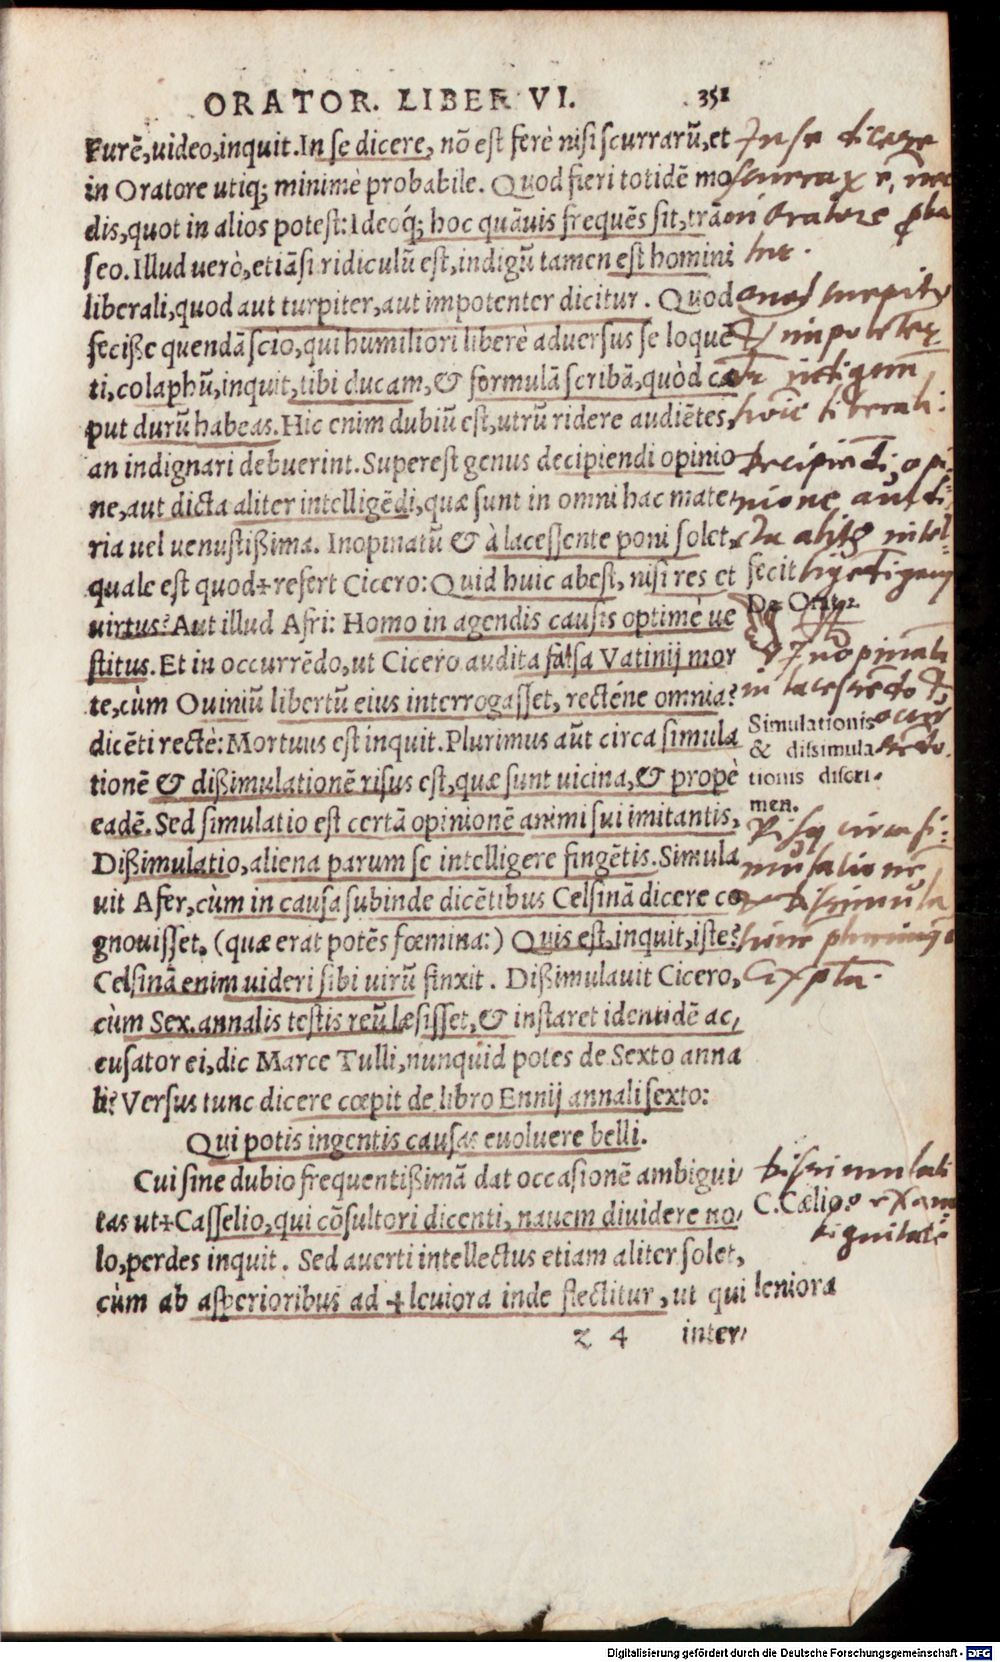 ORATOR. LIBER VI. 351
Furē, uideo, inquit. In se dicere, nō est ferè nisi scurrarū, et
in Oratore utiq; minimè probabile. Quod fieri totidē mo
dis, quot in alios potest: Ideoq́; hoc quāuis frequēs sit, trā
seo. Illud uerò, etiāsi ridiculū est, indigū tamen est homini
liberali, quod aut turpiter, aut impotenter dicitur. Quod
feciße quendā scio, qui humiliori liberè aduersus se loquē
ti, colaphū, inquit, tibi ducam, & formulā scribā, quòd ca
put durū habeas. Hic enim dubiū est, utrū ridere audiētes,
an indignari debuerint. Superest genus decipiendi opinio
ne, aut dicta aliter intelligēdi, quæ sunt in omni hac mate
ria uel uenustißima. Inopinatū & à lacessente poni solet,
quale est quod + refert Cicero: Quid huic abest, nisi res et
uirtus? Aut illud Afri: Homo in agendis causis optimè ue
stitus. Et in occurrēdo, ut Cicero audita falsa Vatinij mor
te, cùm Ouiniū libertū eius interrogasset, recténe omnia?
dicēti rectè: Mortuus est inquit. Plurimus aūt circa simula
tionē & dißimulationē risus est, quæ sunt uicina, & propè
eadē. Sed simulatio est certā opinionē animi sui imitantis,
Dißimulatio, aliena parum se intelligere fingētis. Simula
uit Afer, cùm in causa subinde dicētibus Celsinā dicere co
gnouisset. (quæ erat potēs fœmina:) Quis est, inquit, iste?
Celsinā enim uideri sibi uirū finxit. Dißimulauit Cicero,
cùm Sex. annalis testis reū læsisset, & instaret identidē ac/
cusator ei, dic Marce Tulli, nunquid potes de Sexto anna
li? Versus tunc dicere cœpit de libro Ennij annali sexto:
Qui potis ingentis causas euoluere belli.
Cui sine dubio frequentißimā dat occasionē ambigui/
tas ut + Casselio, qui cōsultori dicenti, nauem diuidere uo/
lo, perdes inquit. Sed auerti intellectus etiam aliter solet,
cùm ab asperioribus ad + leuiora inde flectitur, ut qui
z 4 inter/
In se dicere
oratore
impotenter
liberali:
opi-
nione aut di-
fecit
De Orat. 2.
Inopinati
Simulationis
& dissimula
tionis discri-
men.
Risus circa si-
mulationē
C. Cælio.
leniora
Digitalisierung gefördert durch die Deutsche Forschungsgemeinschaft - DFG